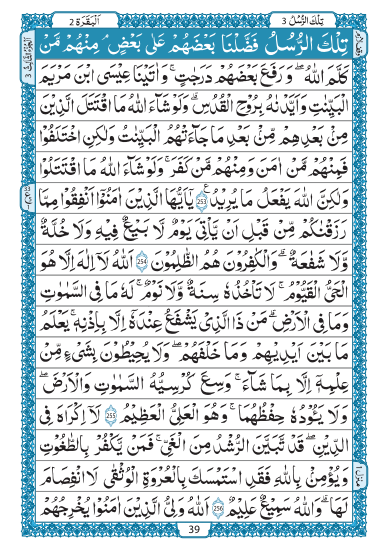 تِلْكَ الرُّسُلُ 3
اَلْبَقَرَة 2
تِلْكَ الرُّسُلُ فَضَّلْنَا بَعْضَهُمْ عَلٰى بَعْضٍ ۘ مِنْهُمْ مَّنْ
كَلَّمَ اللّٰهُ ؕ وَ رَفَعَ بَعْضَهُمْ دَرَجٰتٍ ؕ وَ اٰتَيْنَا عِيْسَى ابْنَ مَرْيَمَ
الْبَيِّنٰتِ وَ اَيَّدْنٰهُ بِرُوْحِ الْقُدُسِ ؕ وَ لَوْ شَآءَ اللّٰهُ مَا اقْتَتَلَ الَّذِيْنَ
مِنْۢ بَعْدِهِمْ مِّنْۢ بَعْدِ مَا جَآءَتْهُمُ الْبَيِّنٰتُ وَ لٰكِنِ اخْتَلَفُوْا
فَمِنْهُمْ مَّنْ اٰمَنَ وَ مِنْهُمْ مَّنْ كَفَرَ ؕ وَ لَوْ شَآءَ اللّٰهُ مَا اقْتَتَلُوْا
وَ لٰكِنَّ اللّٰهَ يَفْعَلُ مَا يُرِيْدُ 253 يٰۤاَيُّهَا الَّذِيْنَ اٰمَنُوْۤا اَنْفِقُوْا مِمَّا
رَزَقْنٰكُمْ مِّنْ قَبْلِ اَنْ يَّاْتِيَ يَوْمٌ لَّا بَيْعٌ فِيْهِ وَ لَا خُلَّةٌ
وَّ لَا شَفَاعَةٌ ؕ وَ الْكٰفِرُوْنَ هُمُ الظّٰلِمُوْنَ 254 اَللّٰهُ لَاۤ اِلٰهَ اِلَّا هُوَ
الْحَيُّ الْقَيُّوْمُ ۚ لَا تَاْخُذُهٗ سِنَةٌ وَّ لَا نَوْمٌ ؕ لَهٗ مَا فِي السَّمٰوٰتِ
وَ مَا فِي الْاَرْضِ ؕ مَنْ ذَا الَّذِيْ يَشْفَعُ عِنْدَهٗۤ اِلَّا بِاِذْنِهٖ ؕ يَعْلَمُ
مَا بَيْنَ اَيْدِيْهِمْ وَ مَا خَلْفَهُمْ ۚ وَ لَا يُحِيْطُوْنَ بِشَيْءٍ مِّنْ
عِلْمِهٖۤ اِلَّا بِمَا شَآءَ ۚ وَسِعَ كُرْسِيُّهُ السَّمٰوٰتِ وَ الْاَرْضَ ۚ
وَ لَا يَـُٔوْدُهٗ حِفْظُهُمَا ۚ وَ هُوَ الْعَلِيُّ الْعَظِيْمُ 255 لَاۤ اِكْرَاهَ فِي
الدِّيْنِ ۙ قَدْ تَّبَيَّنَ الرُّشْدُ مِنَ الْغَيِّ ۚ فَمَنْ يَّكْفُرْ بِالطَّاغُوْتِ
وَ يُؤْمِنْۢ بِاللّٰهِ فَقَدِ اسْتَمْسَكَ بِالْعُرْوَةِ الْوُثْقٰى لَا انْفِصَامَ
لَهَا ؕ وَ اللّٰهُ سَمِيْعٌ عَلِيْمٌ 256 اَللّٰهُ وَلِيُّ الَّذِيْنَ اٰمَنُوْا يُخْرِجُهُمْ
39